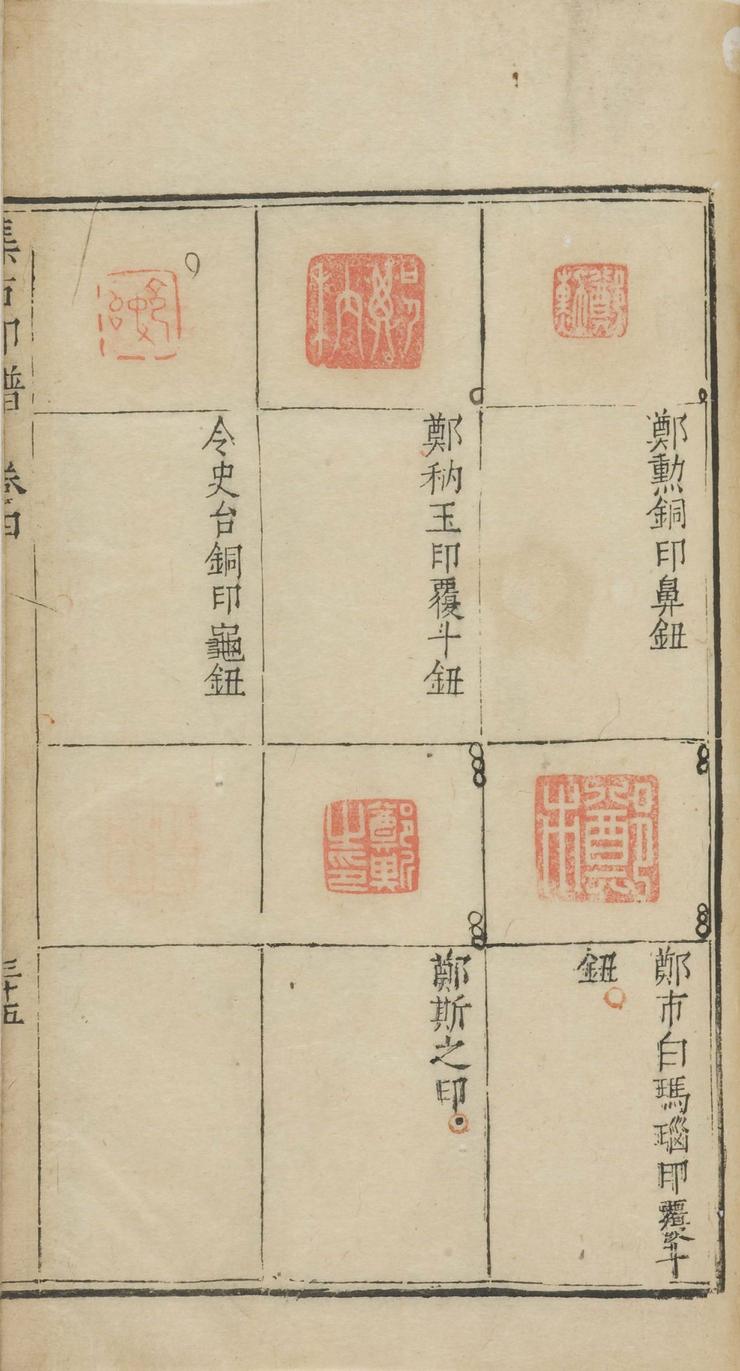 鄭勲銅印鼻鈕
鄭秇玉印覆斗鈕
令史台銅印龜鈕
鄭市白瑪瑙印覆斗
鈕
鄭斯之印
集古印譜 卷四
三十五